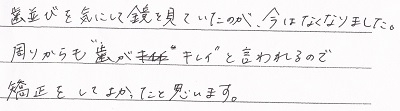 歯並びを気にして鏡を見ていたのが、今はなくなりました。
周りからも"歯がキレイ"と言われるので
矯正をしてよかったと思います。